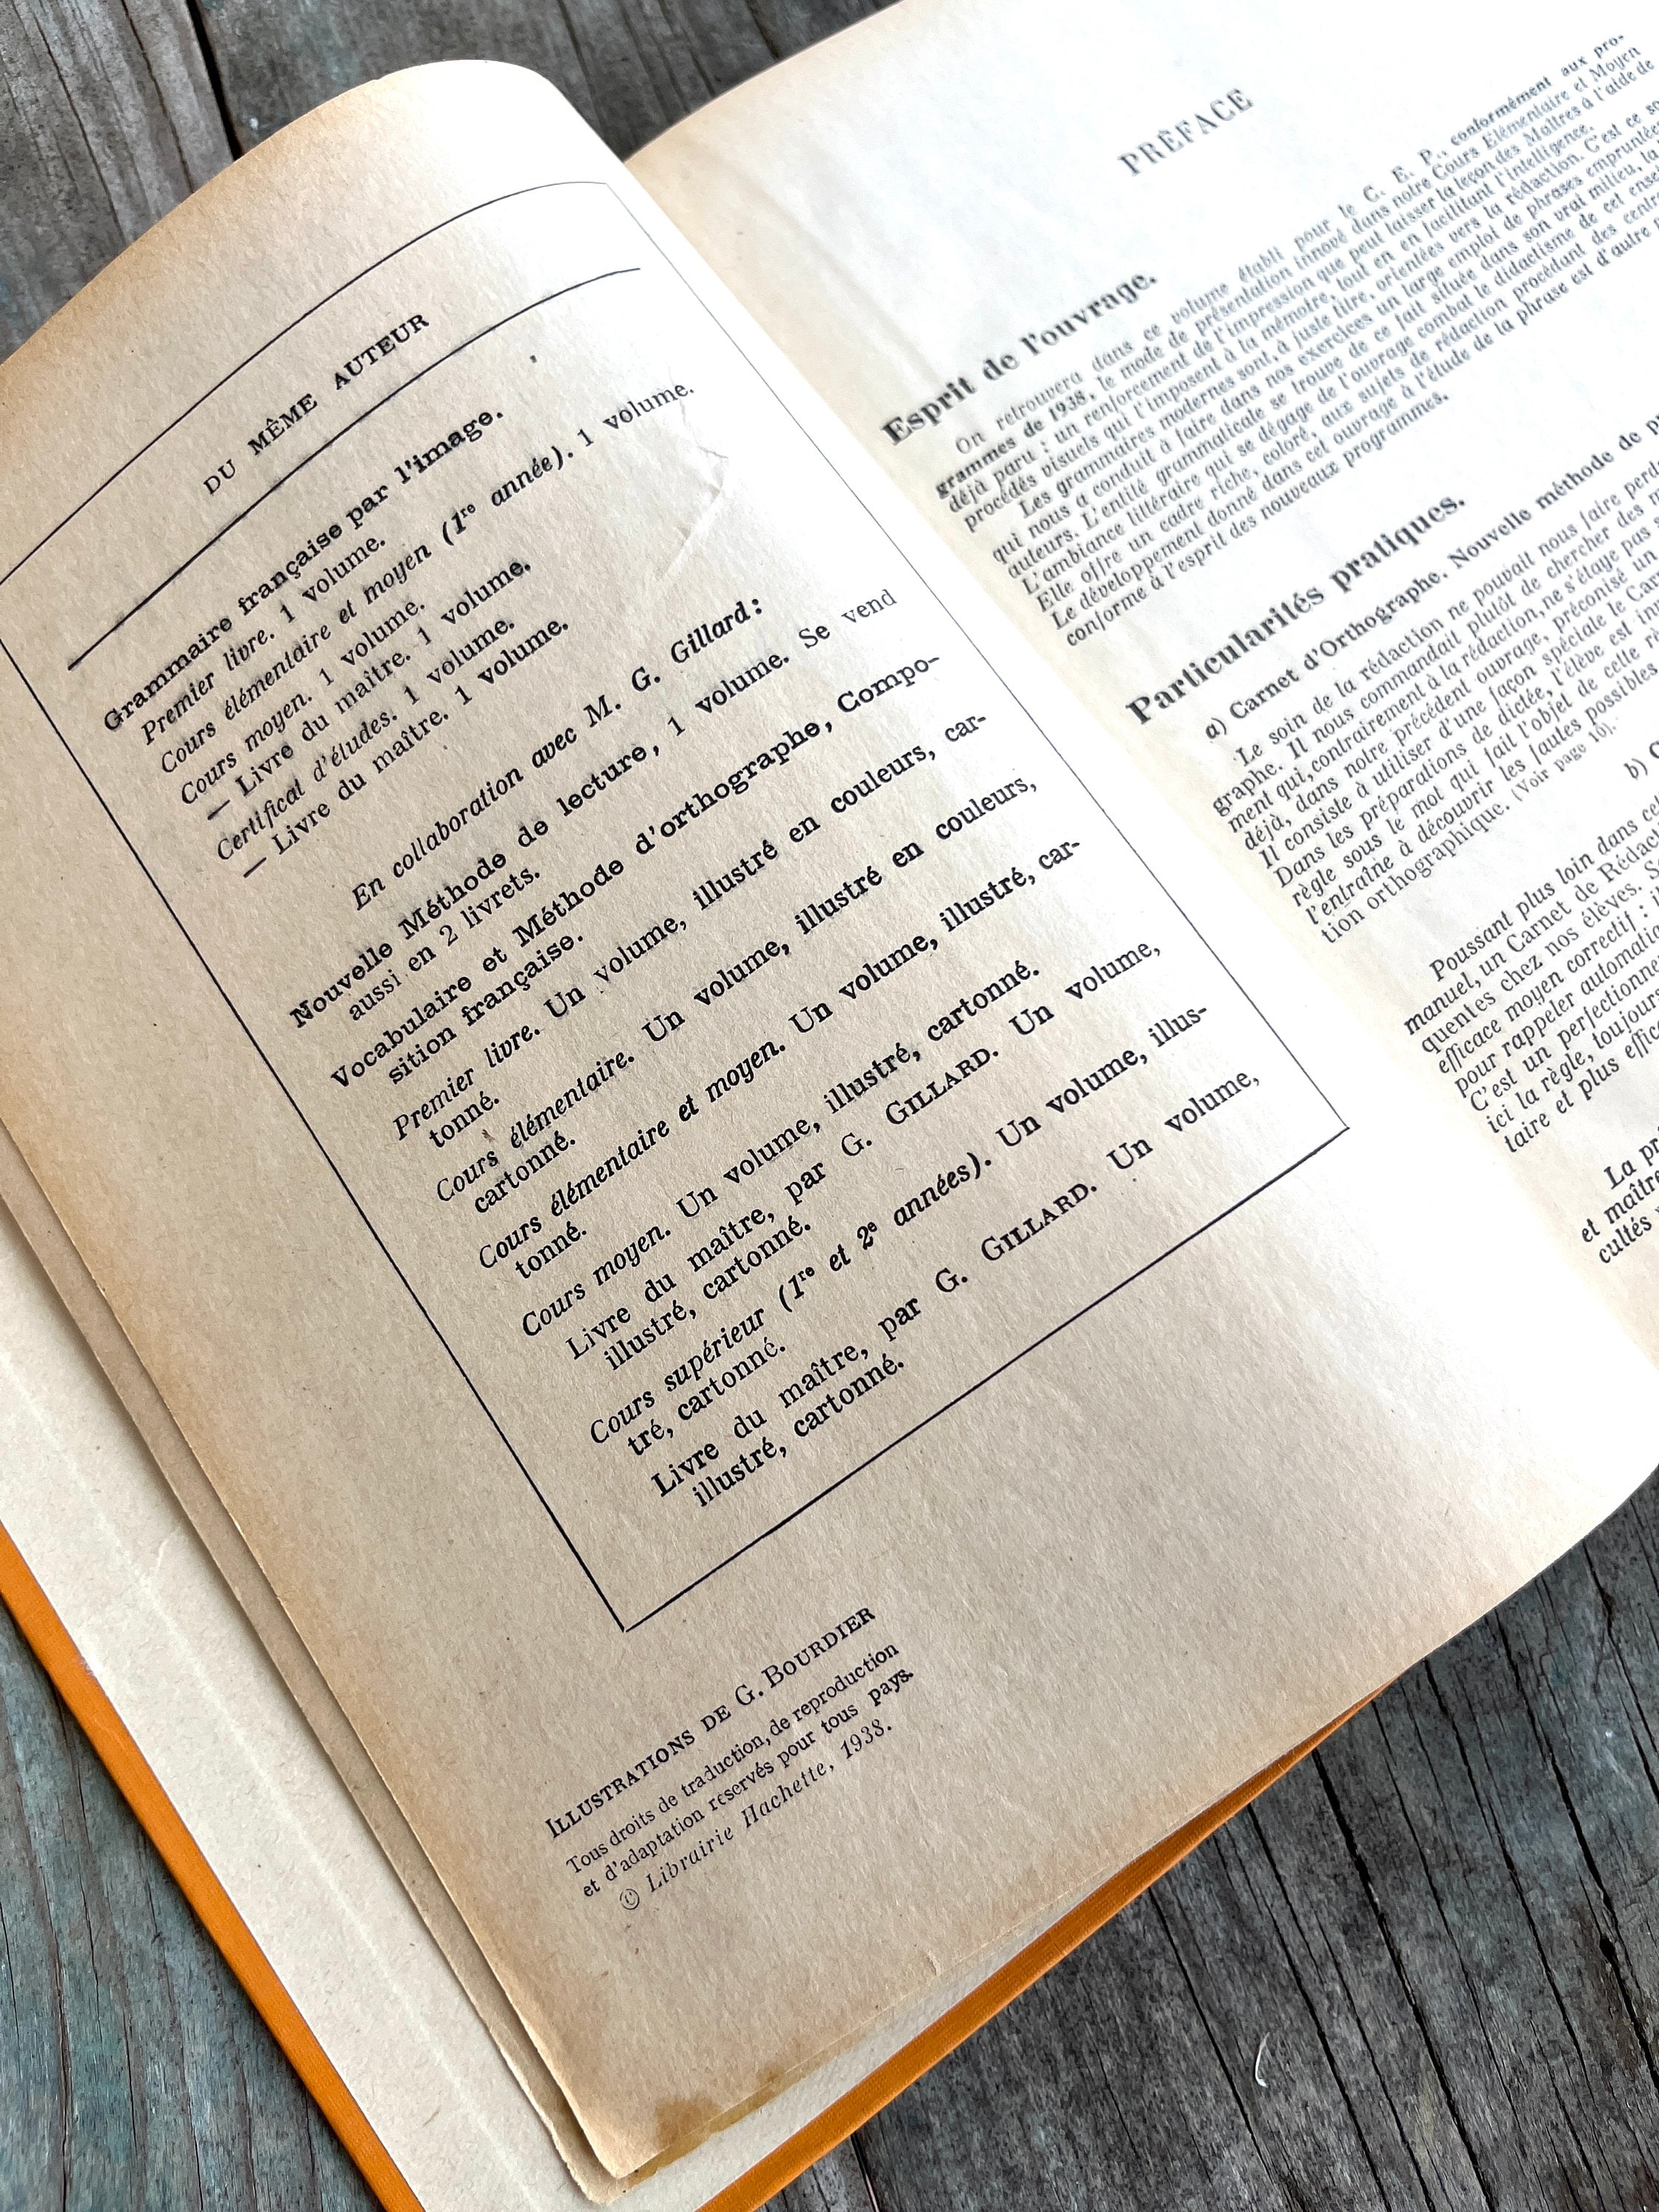 DU MÊME AUTEUR
Grammaire française par l'image.
Premier livre. 1 volume.
Cours élémentaire et moyen (1re année). 1 volume.
Cours moyen. 1 volume.
— Livre du maître. 1 volume.
Certificat d'études. 1 volume.
— Livre du maître. 1 volume.
En collaboration avec M. G. Gillard :
Nouvelle Méthode de lecture, 1 volume. Se vend
aussi en 2 livrets.
Vocabulaire et Méthode d'orthographe, Compo-
sition française.
Premier livre. Un volume, illustré en couleurs, car-
tonné.
Cours élémentaire. Un volume, illustré en couleurs,
cartonné.
Cours élémentaire et moyen. Un volume, illustré, car-
tonné.
Cours moyen. Un volume, illustré, cartonné.
Livre du maître, par G. GILLARD. Un volume,
illustré, cartonné.
Cours supérieur (1re et 2e années). Un volume, illus-
tré, cartonné.
Livre du maître, par G. GILLARD. Un volume,
illustré, cartonné.
ILLUSTRATIONS DE G. BOURDIER
Tous droits de traduction, de reproduction
et d'adaptation reservés pour tous pays.
© Librairie Hachette, 1938.
PRÉFACE
Esprit de l'ouvrage.
On retrouvera dans ce volume établi pour le C. E. P., conformément aux pro-
grammes de 1938, le mode de présentation innové dans notre Cours Élémentaire et Moyen
déjà paru : un renforcement de l'impression que peut laisser la leçon des Maîtres à l'aide de
procédés visuels qui l'imposent à la mémoire, tout en en facilitant l'intelligence.
Les grammaires modernes sont, à juste titre, orientées vers la rédaction. C'est ce
qui nous a conduit à faire dans nos exercices un large emploi de phrases empruntées
auteurs. L'entité grammaticale se trouve de ce fait située dans son vrai milieu, la
L'ambiance littéraire qui se dégage de l'ouvrage combat le didactisme de cet
Elle offre un cadre riche, coloré, aux sujets de rédaction procédant des
Le développement donné dans cet ouvrage à l'étude de la phrase est d'autre
conforme à l'esprit des nouveaux programmes.
Particularités pratiques.
a) Carnet d'Orthographe. Nouvelle méthode de
Le soin de la rédaction ne pouvait nous faire
graphe. Il nous commandait plutôt de chercher des
ment qui, contrairement à la rédaction, ne s'étage pas
déjà, dans notre précédent ouvrage, préconisé un
Il consiste à utiliser d'une façon spéciale le
Dans les préparations de dictée, l'élève est
règle sous le mot qui fait l'objet de cette
l'entraîne à découvrir les fautes possibles
tion orthographique. (Voir page 10).
b)
Poussant plus loin dans
manuel, un Carnet de
quentes chez nos élèves.
efficace moyen correctif :
pour rappeler
C'est un
ici la règle, toujours
taire et plus
La
et
cultés